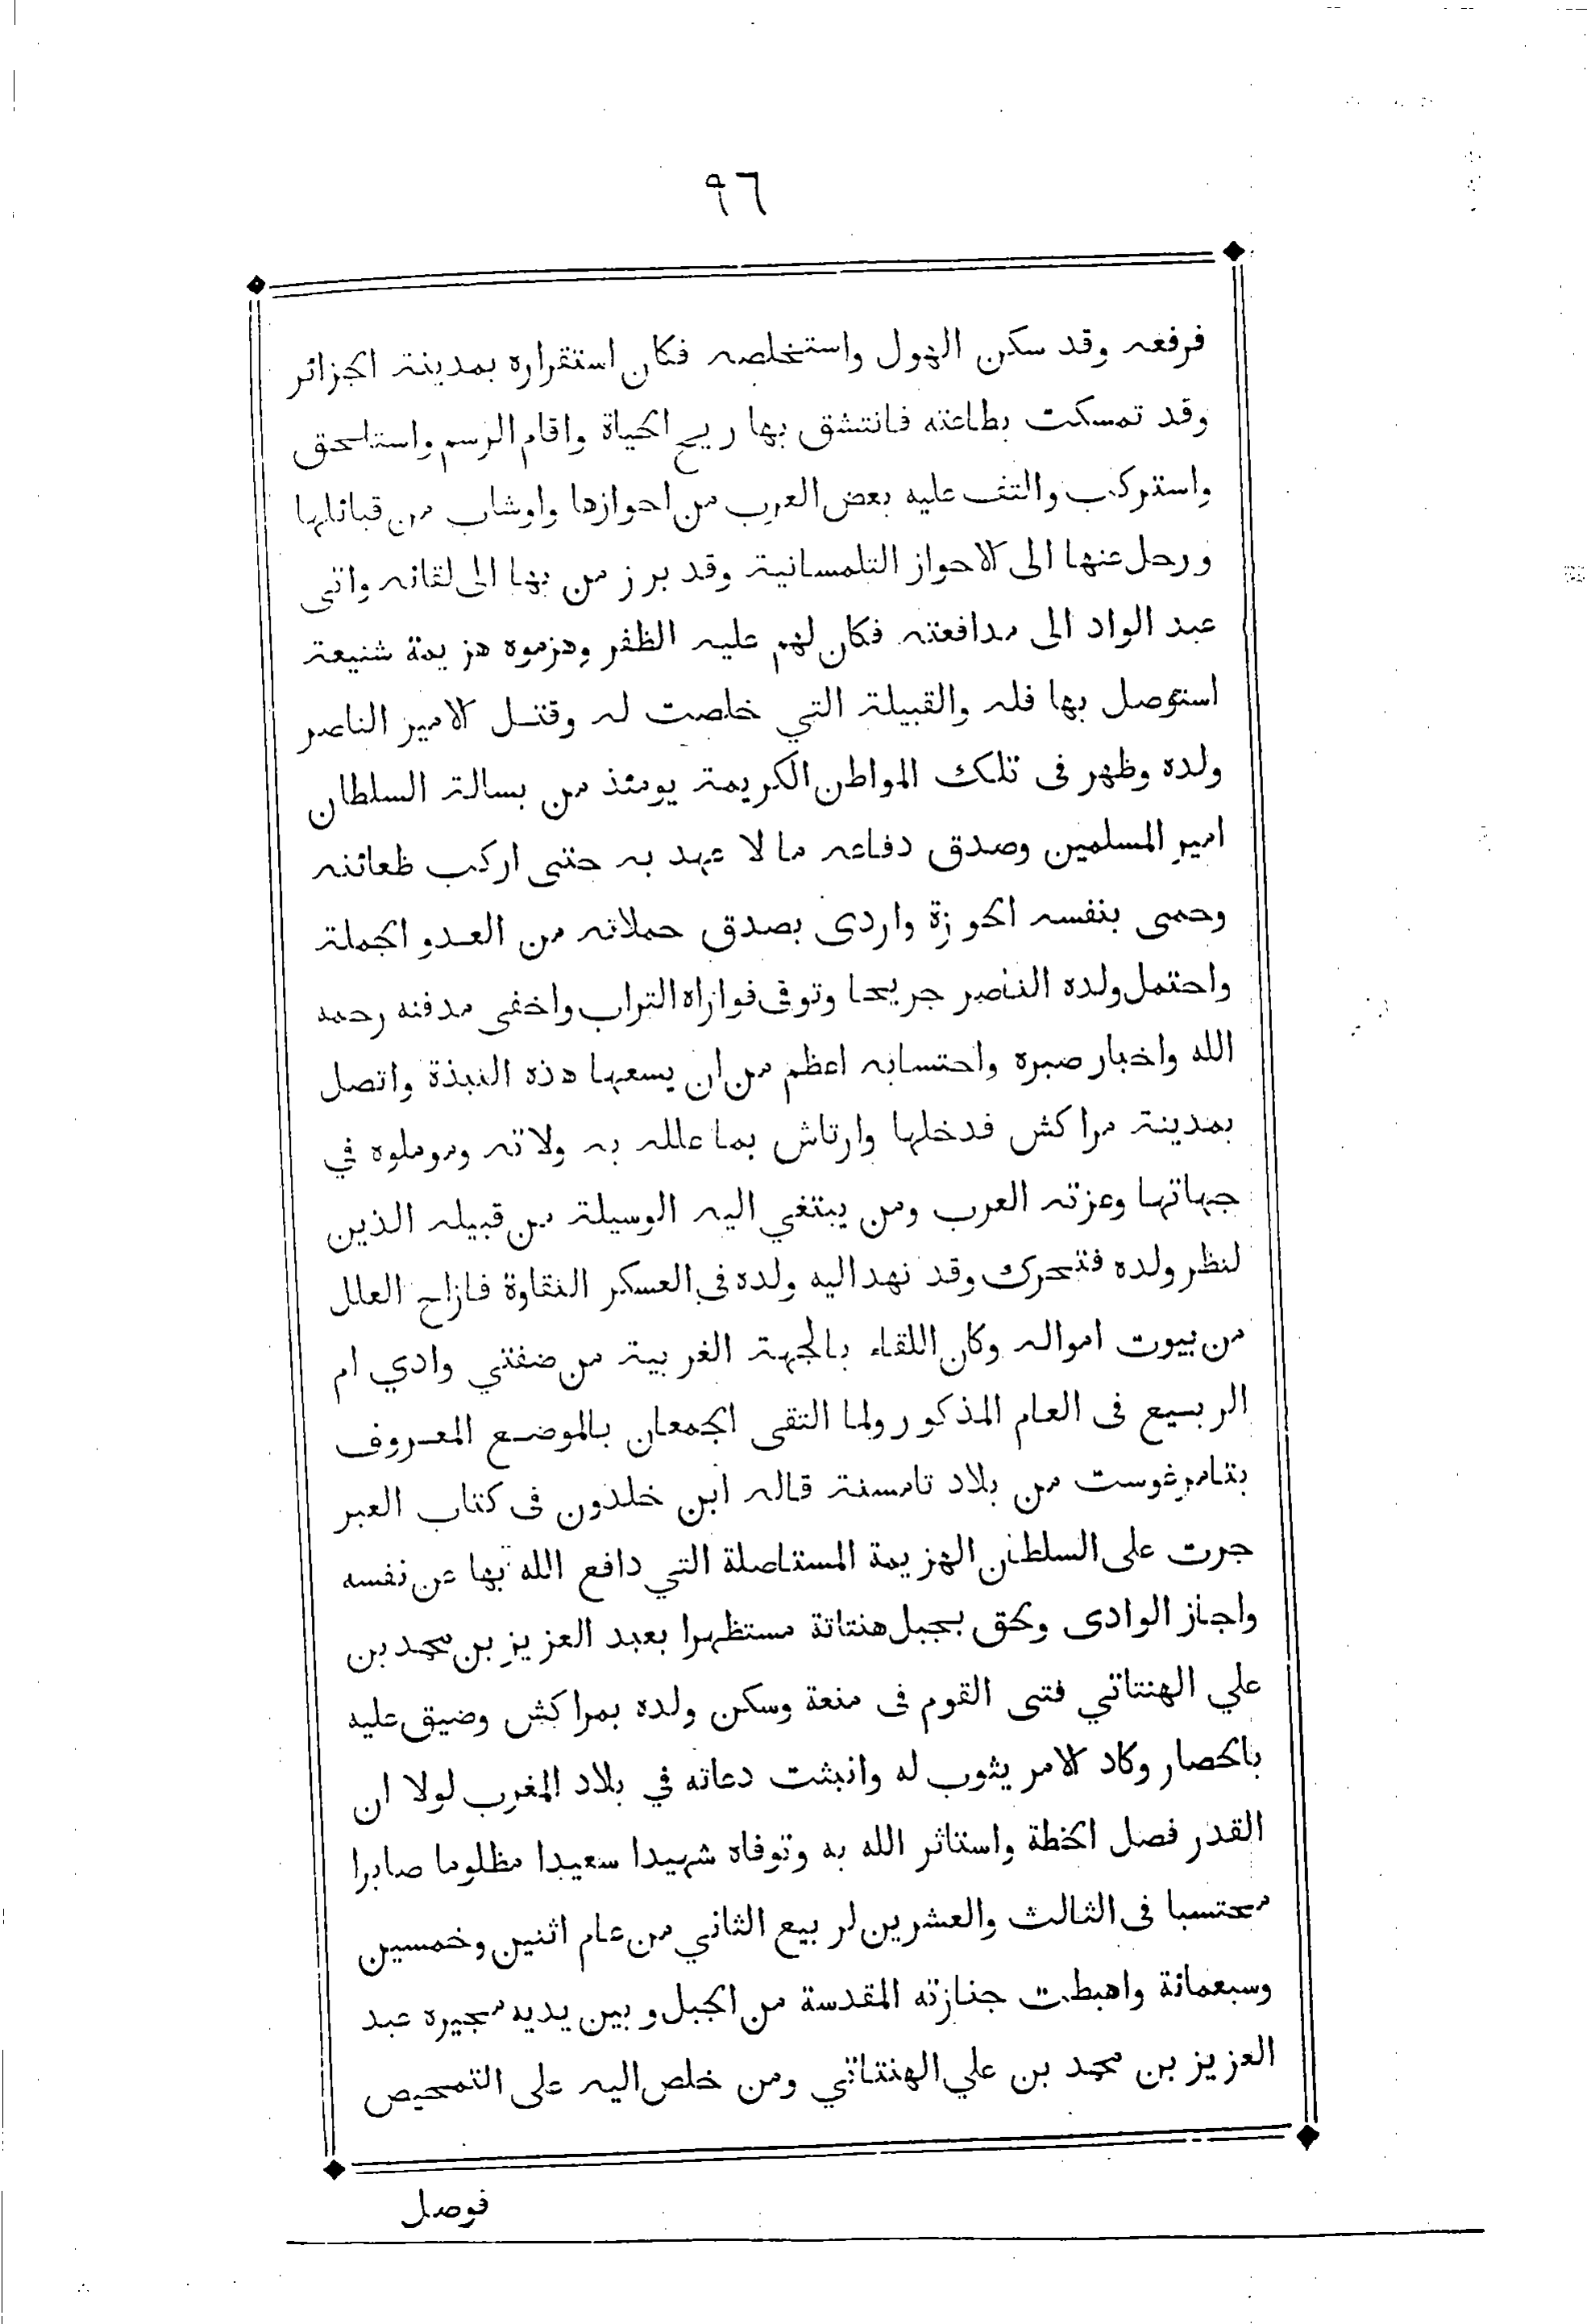 ٩٦
فرفعه وقد سكن الهول واستخلصه فكان استقراره بمدينة الجزائر
وقد تمسكت بطاعته فانتشق بها ريح الحياة واقام الرسم واستلحق
واستركب والتف عليه بعض العرب من احوازها واوشاب من قبائلها
ورحل عنها الى الاحواز التلمسانية وقد برز من بها الى لقائه واتى
عبد الواد الى مدافعته فكان لهم عليه الظفر وهزموه هزيمة شنيعة
استؤصل بها فله والقبيلة التي خلصت له وقتل الامير الناصر
ولده وظهر فى تلك المواطن الكريمة يومئذ من بسالة السلطان
امير المسلمين وصدق دفاعه ما لا عهد به حتى اركب ظعائنه
وحمى بنفسه الحوزة واردى بصدق حملاته من العدو الجملة
واحتمل ولده الناصر جريحا وتوفى فوازاه التراب واخفى مدفنه رحمه
الله واخبار صبره واحتسابه اعظم من ان يسعها هذه النبذة واتصل
بمدينة مراكش فدخلها وارتاش بما علله به ولاته وموملوه في
جهاتها وعزته العرب ومن يبتغي اليه الوسيلة من قبيله الذين
لنظر ولده فتحرك وقد نهد اليه ولده فى العسكر النقاوة فازاح العلل
من بيوت امواله وكان اللقاء بالجهة الغربية من ضفتي وادي ام
الربيع فى العام المذكور ولما التقى الجمعان بالموضع المعروف
بتامرغوست من بلاد تامسنة قاله ابن خلدون فى كتاب العبر
جرت على السلطان الهزيمة المستاصلة التي دافع الله بها عن نفسه
واجاز الوادى ولحق بجبل هنتاتة مستظهرا بعبد العزيز بن محمد بن
علي الهنتاتي فتى القوم فى منعة وسكن ولده بمراكش وضيق عليه
بالحصار وكاد الامر يثوب له وانبثت دعاته في بلاد المغرب لولا ان
القدر فصل الخطة واستاثر الله به وتوفاه شهيدا سعيدا مظلوما صابرا
محتسبا فى الثالث والعشرين لربيع الثاني من عام اثنين وخمسين
وسبعمائة واهبطت جنازته المقدسة من الجبل وبين يديه مجيره عبد
العزيز بن محمد بن علي الهنتاتي ومن خلص اليه على التمحيص
فوصل